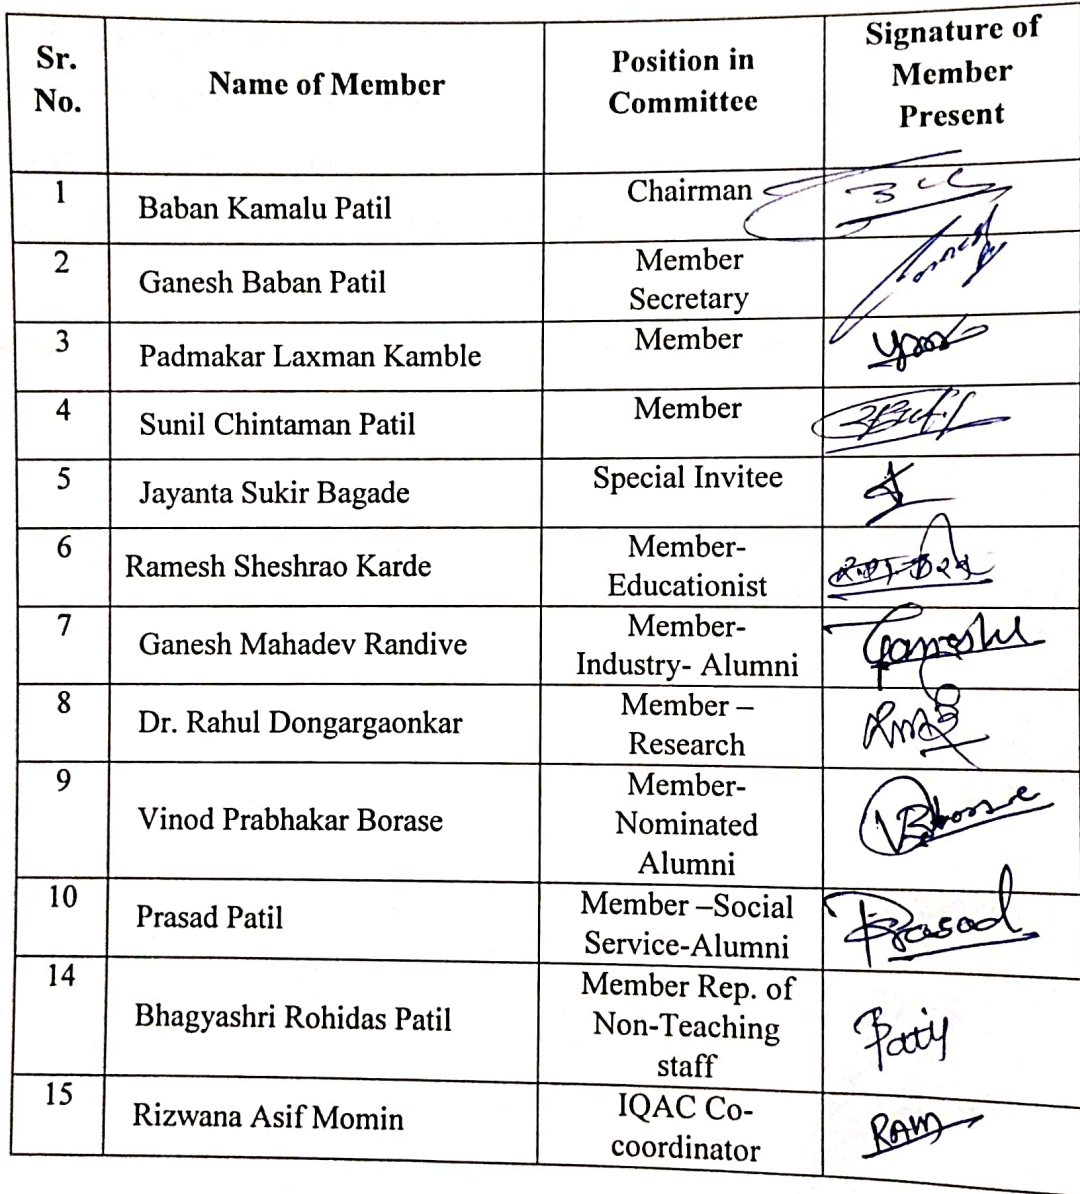 Sr. No.
Name of Member
Position in Committee
Signature of Member Present
1
Baban Kamalu Patil
Chairman
2
Ganesh Baban Patil
Member
Secretary
3
Padmakar Laxman Kamble
Member
4
Sunil Chintaman Patil
Member
5
Jayanta Sukir Bagade
Special Invitee
6
Ramesh Sheshrao Karde
Member-
Educationist
7
Ganesh Mahadev Randive
Member-
Industry- Alumni
Ganesh
8
Dr. Rahul Dongargaonkar
Member –
Research
9
Vinod Prabhakar Borase
Member-
Nominated
Alumni
VBorase
10
Prasad Patil
Member –Social
Service-Alumni
Prasad
14
Bhagyashri Rohidas Patil
Member Rep. of
Non-Teaching
staff
Patil
15
Rizwana Asif Momin
IQAC Co-
coordinator
RAM